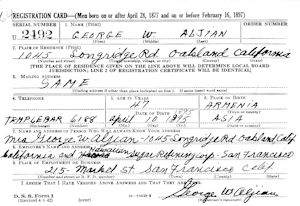 REGISTRATION CARD—(Men born on or after April 28, 1877 and on or before February 16, 1897)
SERIAL NUMBER 1. NAME (Print) ORDER NUMBER
2492 GEORGE W ALJIAN
2. PLACE OF RESIDENCE (Print)
1045 Longridge Rd Oakland California
[THE PLACE OF RESIDENCE GIVEN ON THE LINE ABOVE WILL DETERMINE LOCAL BOARD
JURISDICTION; LINE 2 OF REGISTRATION CERTIFICATE WILL BE IDENTICAL]
3. MAILING ADDRESS
SAME
4. TELEPHONE
47 ARMENIA
TEMPLEBAR 6188 April 10 1895 ASIA
7. NAME AND ADDRESS OF PERSON WHO WILL ALWAYS KNOW YOUR ADDRESS
Mrs George W Aljian - 1045 Longridge Rd Oakland Calif
8. EMPLOYER'S NAME AND ADDRESS
California and Hawaiian Sugar Refining Corp - San Francisco
215 - Market St San Francisco Calif
I AFFIRM THAT I HAVE VERIFIED ABOVE ANSWERS AND THAT THEY ARE TRUE.
D. S. S. Form 1
George W Aljian